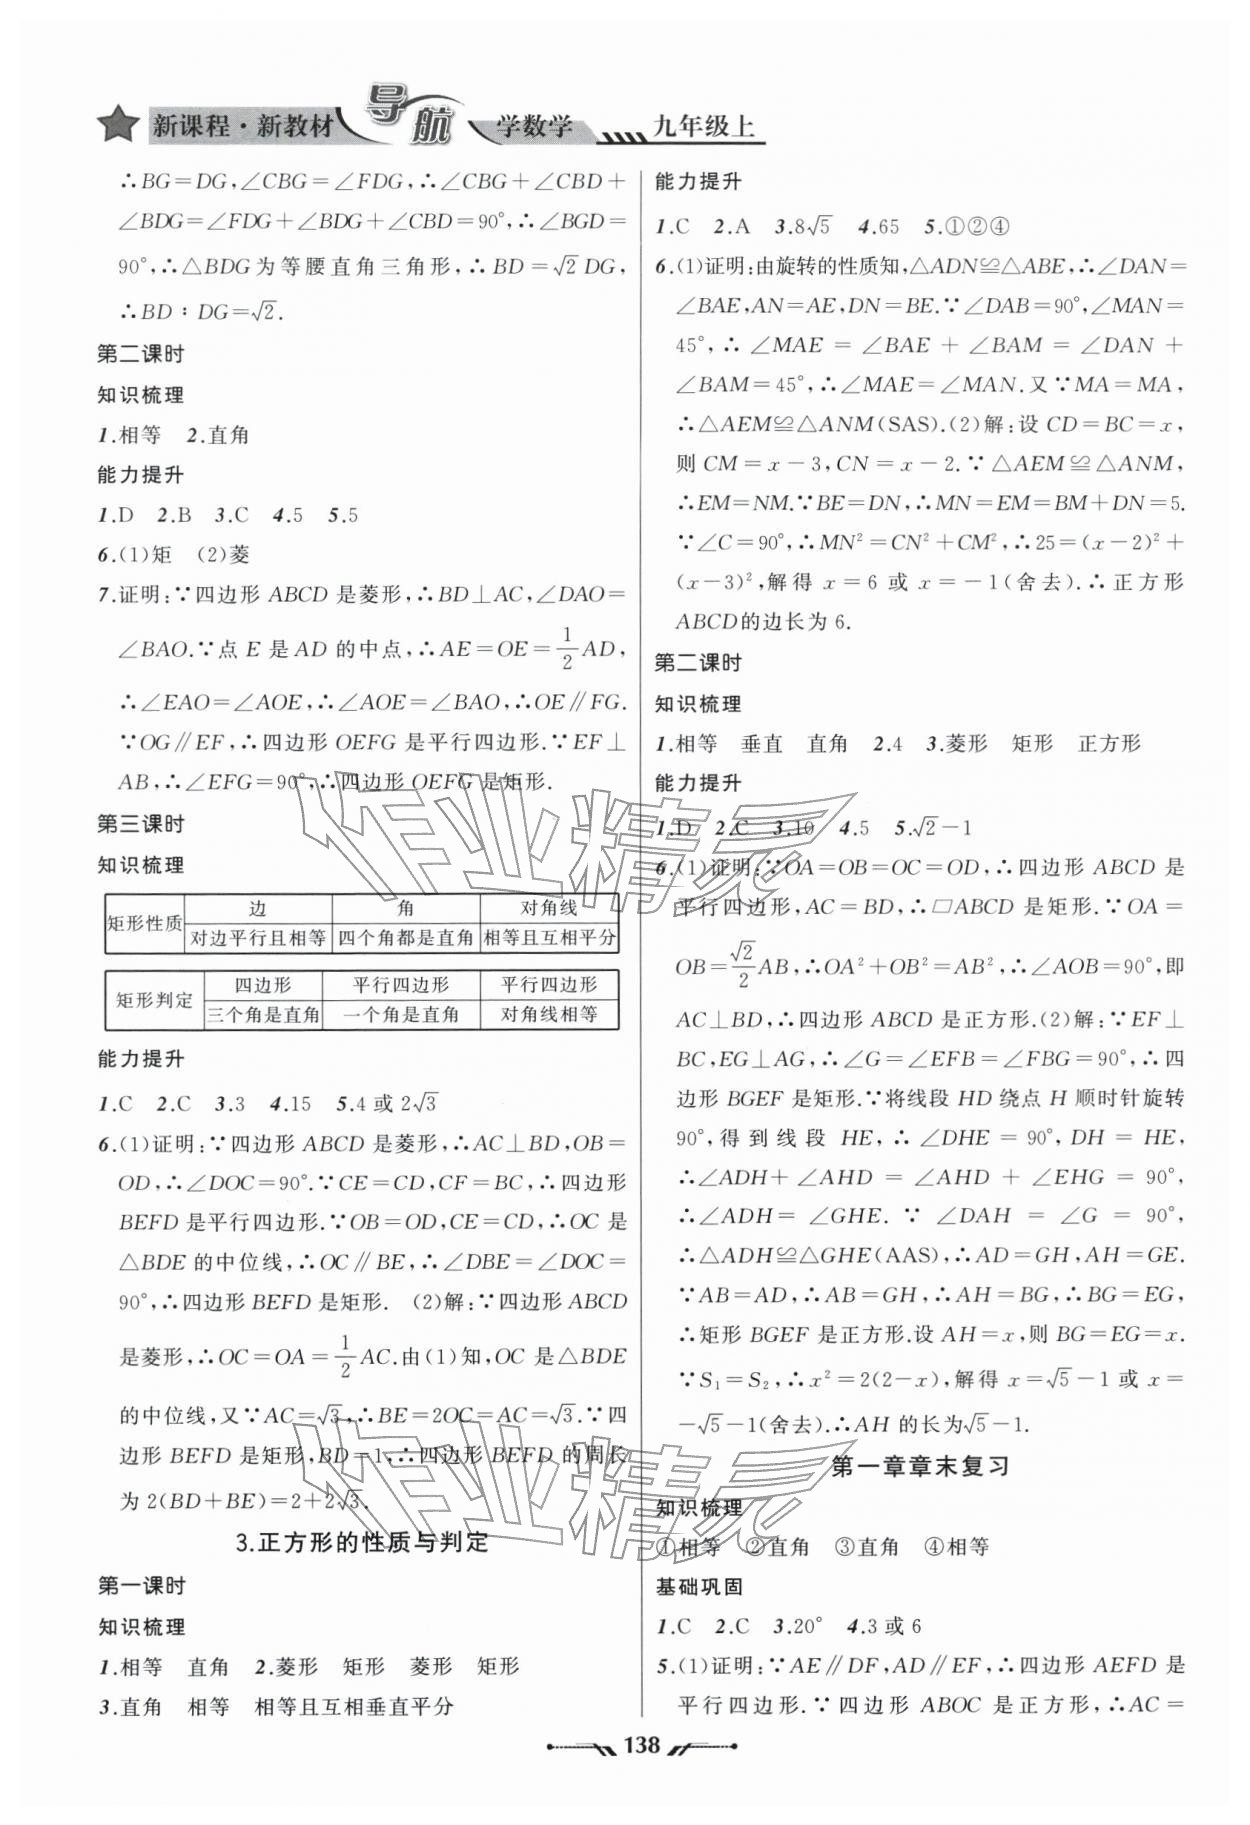 新课程·新教材 导航 学数学 九年级上
∴BG=DG,∠CBG=∠FDG,∴∠CBG+∠CBD+
∠BDG=∠FDG+∠BDG+∠CBD=90°,∴∠BGD=
90°,∴△BDG为等腰直角三角形,∴BD=√2DG,
∴BD∶DG=√2.
第二课时
知识梳理
1.相等 2.直角
能力提升
1.D 2.B 3.C 4.5 5.5
6.(1)矩 (2)菱
7.证明:∵四边形ABCD是菱形,∴BD⊥AC,∠DAO=
∠BAO.∵点E是AD的中点,∴AE=OE=1/2AD,
∴∠EAO=∠AOE,∴∠AOE=∠BAO,∴OE∥FG.
∵OG∥EF,∴四边形OEFG是平行四边形.∵EF⊥
AB,∴∠EFG=90°,∴四边形OEFG是矩形.
第三课时
知识梳理
矩形性质 边 角 对角线
对边平行且相等 四个角都是直角 相等且互相平分
矩形判定 四边形 平行四边形 平行四边形
三个角是直角 一个角是直角 对角线相等
能力提升
1.C 2.C 3.3 4.15 5.4或2√3
6.(1)证明:∵四边形ABCD是菱形,∴AC⊥BD,OB=
OD,∴∠DOC=90°.∵CE=CD,CF=BC,∴四边形
BEFD是平行四边形.∵OB=OD,CE=CD,∴OC是
△BDE的中位线,∴OC∥BE,∴∠DBE=∠DOC=
90°,∴四边形BEFD是矩形. (2)解:∵四边形ABCD
是菱形,∴OC=OA=1/2AC.由(1)知,OC是△BDE
的中位线,又∵AC=√3,∴BE=2OC=AC=√3.∵四
边形BEFD是矩形,BD=1,∴四边形BEFD的周长
为2(BD+BE)=2+2√3.
3.正方形的性质与判定
第一课时
知识梳理
1.相等 直角 2.菱形 矩形 菱形 矩形
3.直角 相等 相等且互相垂直平分
能力提升
1.C 2.A 3.8√5 4.65 5.①②④
6.(1)证明:由旋转的性质知,△ADN≌△ABE,∴∠DAN=
∠BAE,AN=AE,DN=BE.∵∠DAB=90°,∠MAN=
45°,∴∠MAE=∠BAE+∠BAM=∠DAN+
∠BAM=45°,∴∠MAE=∠MAN.又∵MA=MA,
∴△AEM≌△ANM(SAS).(2)解:设CD=BC=x,
则CM=x-3,CN=x-2.∵△AEM≌△ANM,
∴EM=NM.∵BE=DN,∴MN=EM=BM+DN=5.
∵∠C=90°,∴MN²=CN²+CM²,∴25=(x-2)²+
(x-3)²,解得x=6或x=-1(舍去).∴正方形
ABCD的边长为6.
第二课时
知识梳理
1.相等 垂直 直角 2.4 3.菱形 矩形 正方形
能力提升
1.D 2.C 3.10 4.5 5.√2-1
6.(1)证明:∵OA=OB=OC=OD,∴四边形ABCD是
平行四边形,AC=BD,∴□ABCD是矩形.∵OA=
OB=√2/2AB,∴OA²+OB²=AB²,∴∠AOB=90°,即
AC⊥BD,∴四边形ABCD是正方形.(2)解:∵EF⊥
BC,EG⊥AG,∴∠G=∠EFB=∠FBG=90°,∴四
边形BGEF是矩形.∵将线段HD绕点H顺时针旋转
90°,得到线段HE,∴∠DHE=90°,DH=HE,
∴∠ADH+∠AHD=∠AHD+∠EHG=90°,
∴∠ADH=∠GHE.∵∠DAH=∠G=90°,
∴△ADH≌△GHE(AAS),∴AD=GH,AH=GE.
∵AB=AD,∴AB=GH,∴AH=BG,∴BG=EG,
∴矩形BGEF是正方形.设AH=x,则BG=EG=x.
∵S₁=S₂,∴x²=2(2-x),解得x=√5-1或x=
-√5-1(舍去).∴AH的长为√5-1.
第一章章末复习
知识梳理
①相等 ②直角 ③直角 ④相等
基础巩固
1.C 2.C 3.20° 4.3或6
5.(1)证明:∵AE∥DF,AD∥EF,∴四边形AEFD是
平行四边形.∵四边形ABOC是正方形,∴AC=
138
作业精灵
作业精灵